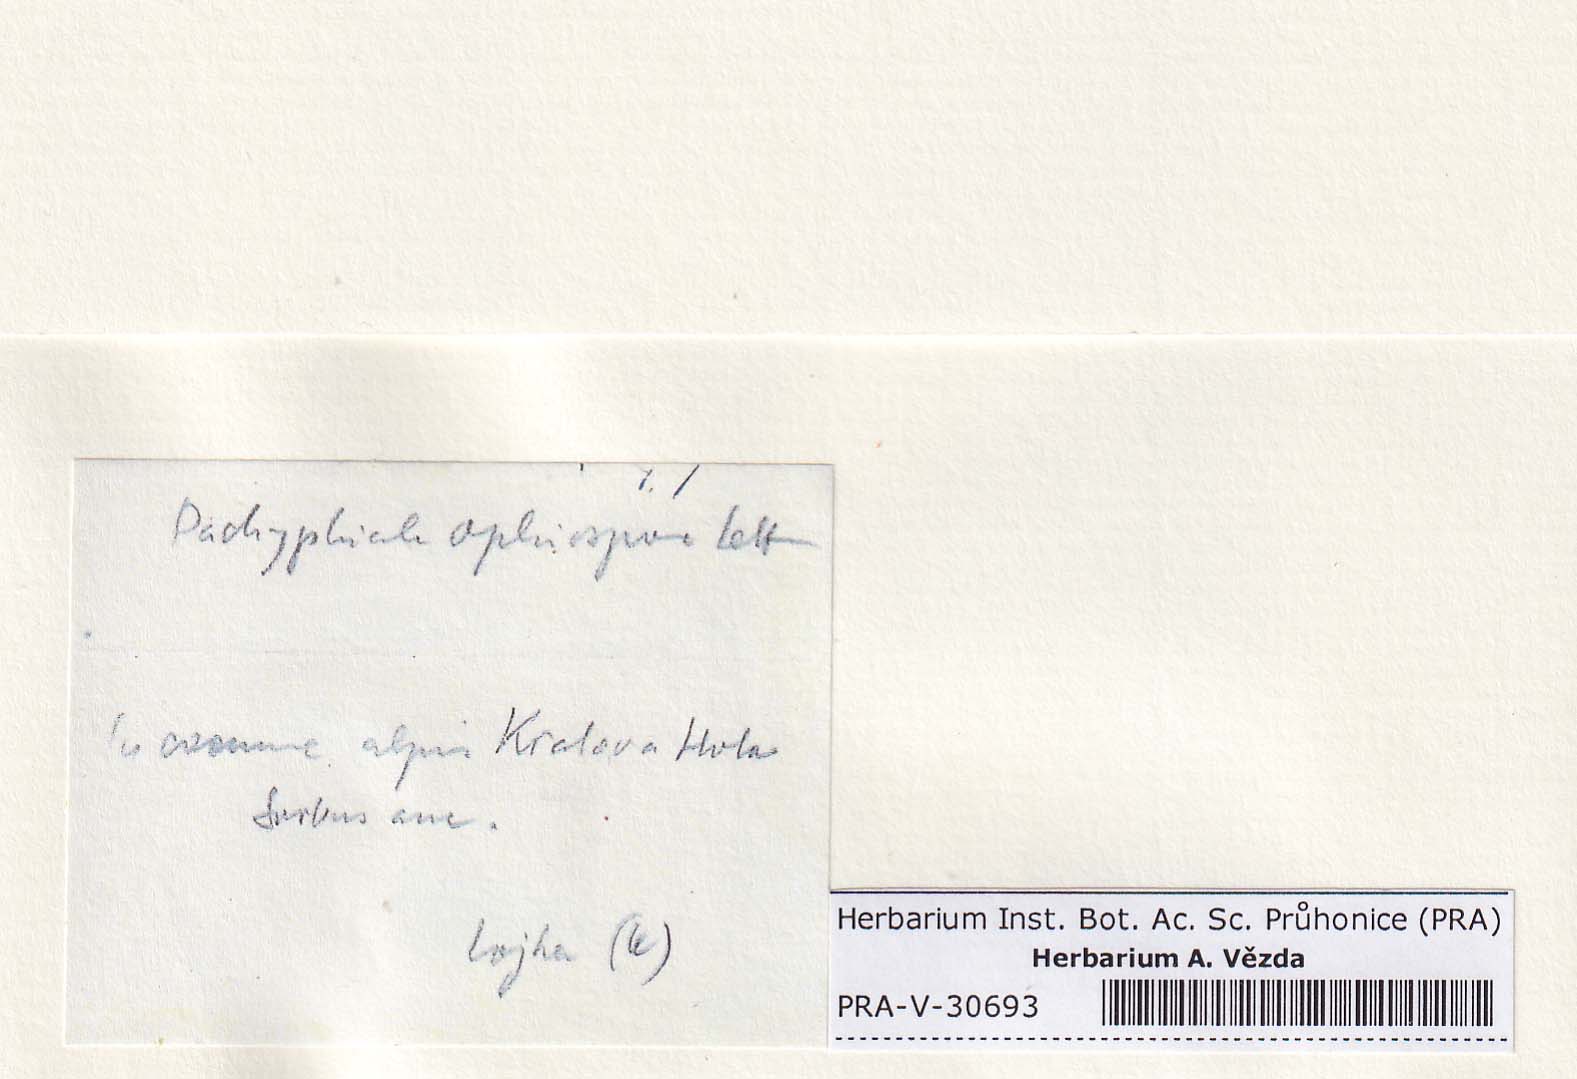 Pachyphiale ophiospora Lett
alpis Kralova Hola
Sorbus auc.
Herbarium Inst. Bot. Ac. Sc. Průhonice (PRA)
Herbarium A. Vězda
PRA-V-30693